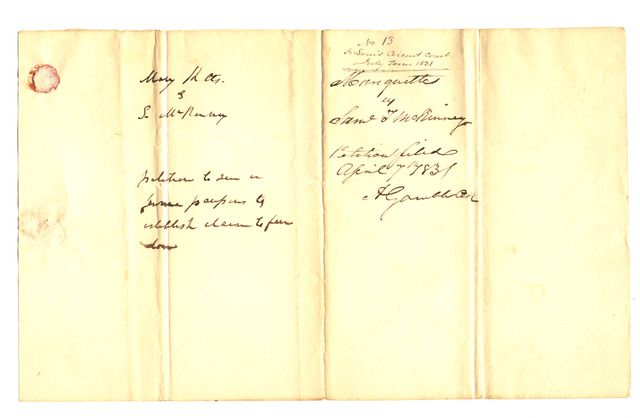 Mary
S McKinney
petition to sue in
forma pauperis to
establish claim to free
dom
No 13
St Louis Circuit Court
July Term 1831
Marguette
vs
Saml T McKinney
Petition filed
April 7 1831
A Gamble Clk